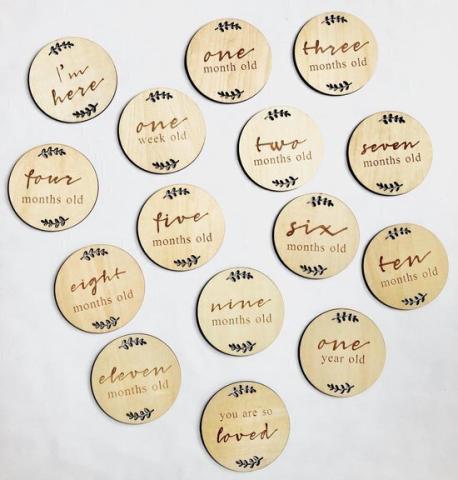 I'm
here
one
month old
three
months old
one
week old
two
months old
seven
months old
four
months old
five
months old
six
months old
ten
months old
eight
months old
nine
months old
one
year old
eleven
months old
you are so
loved